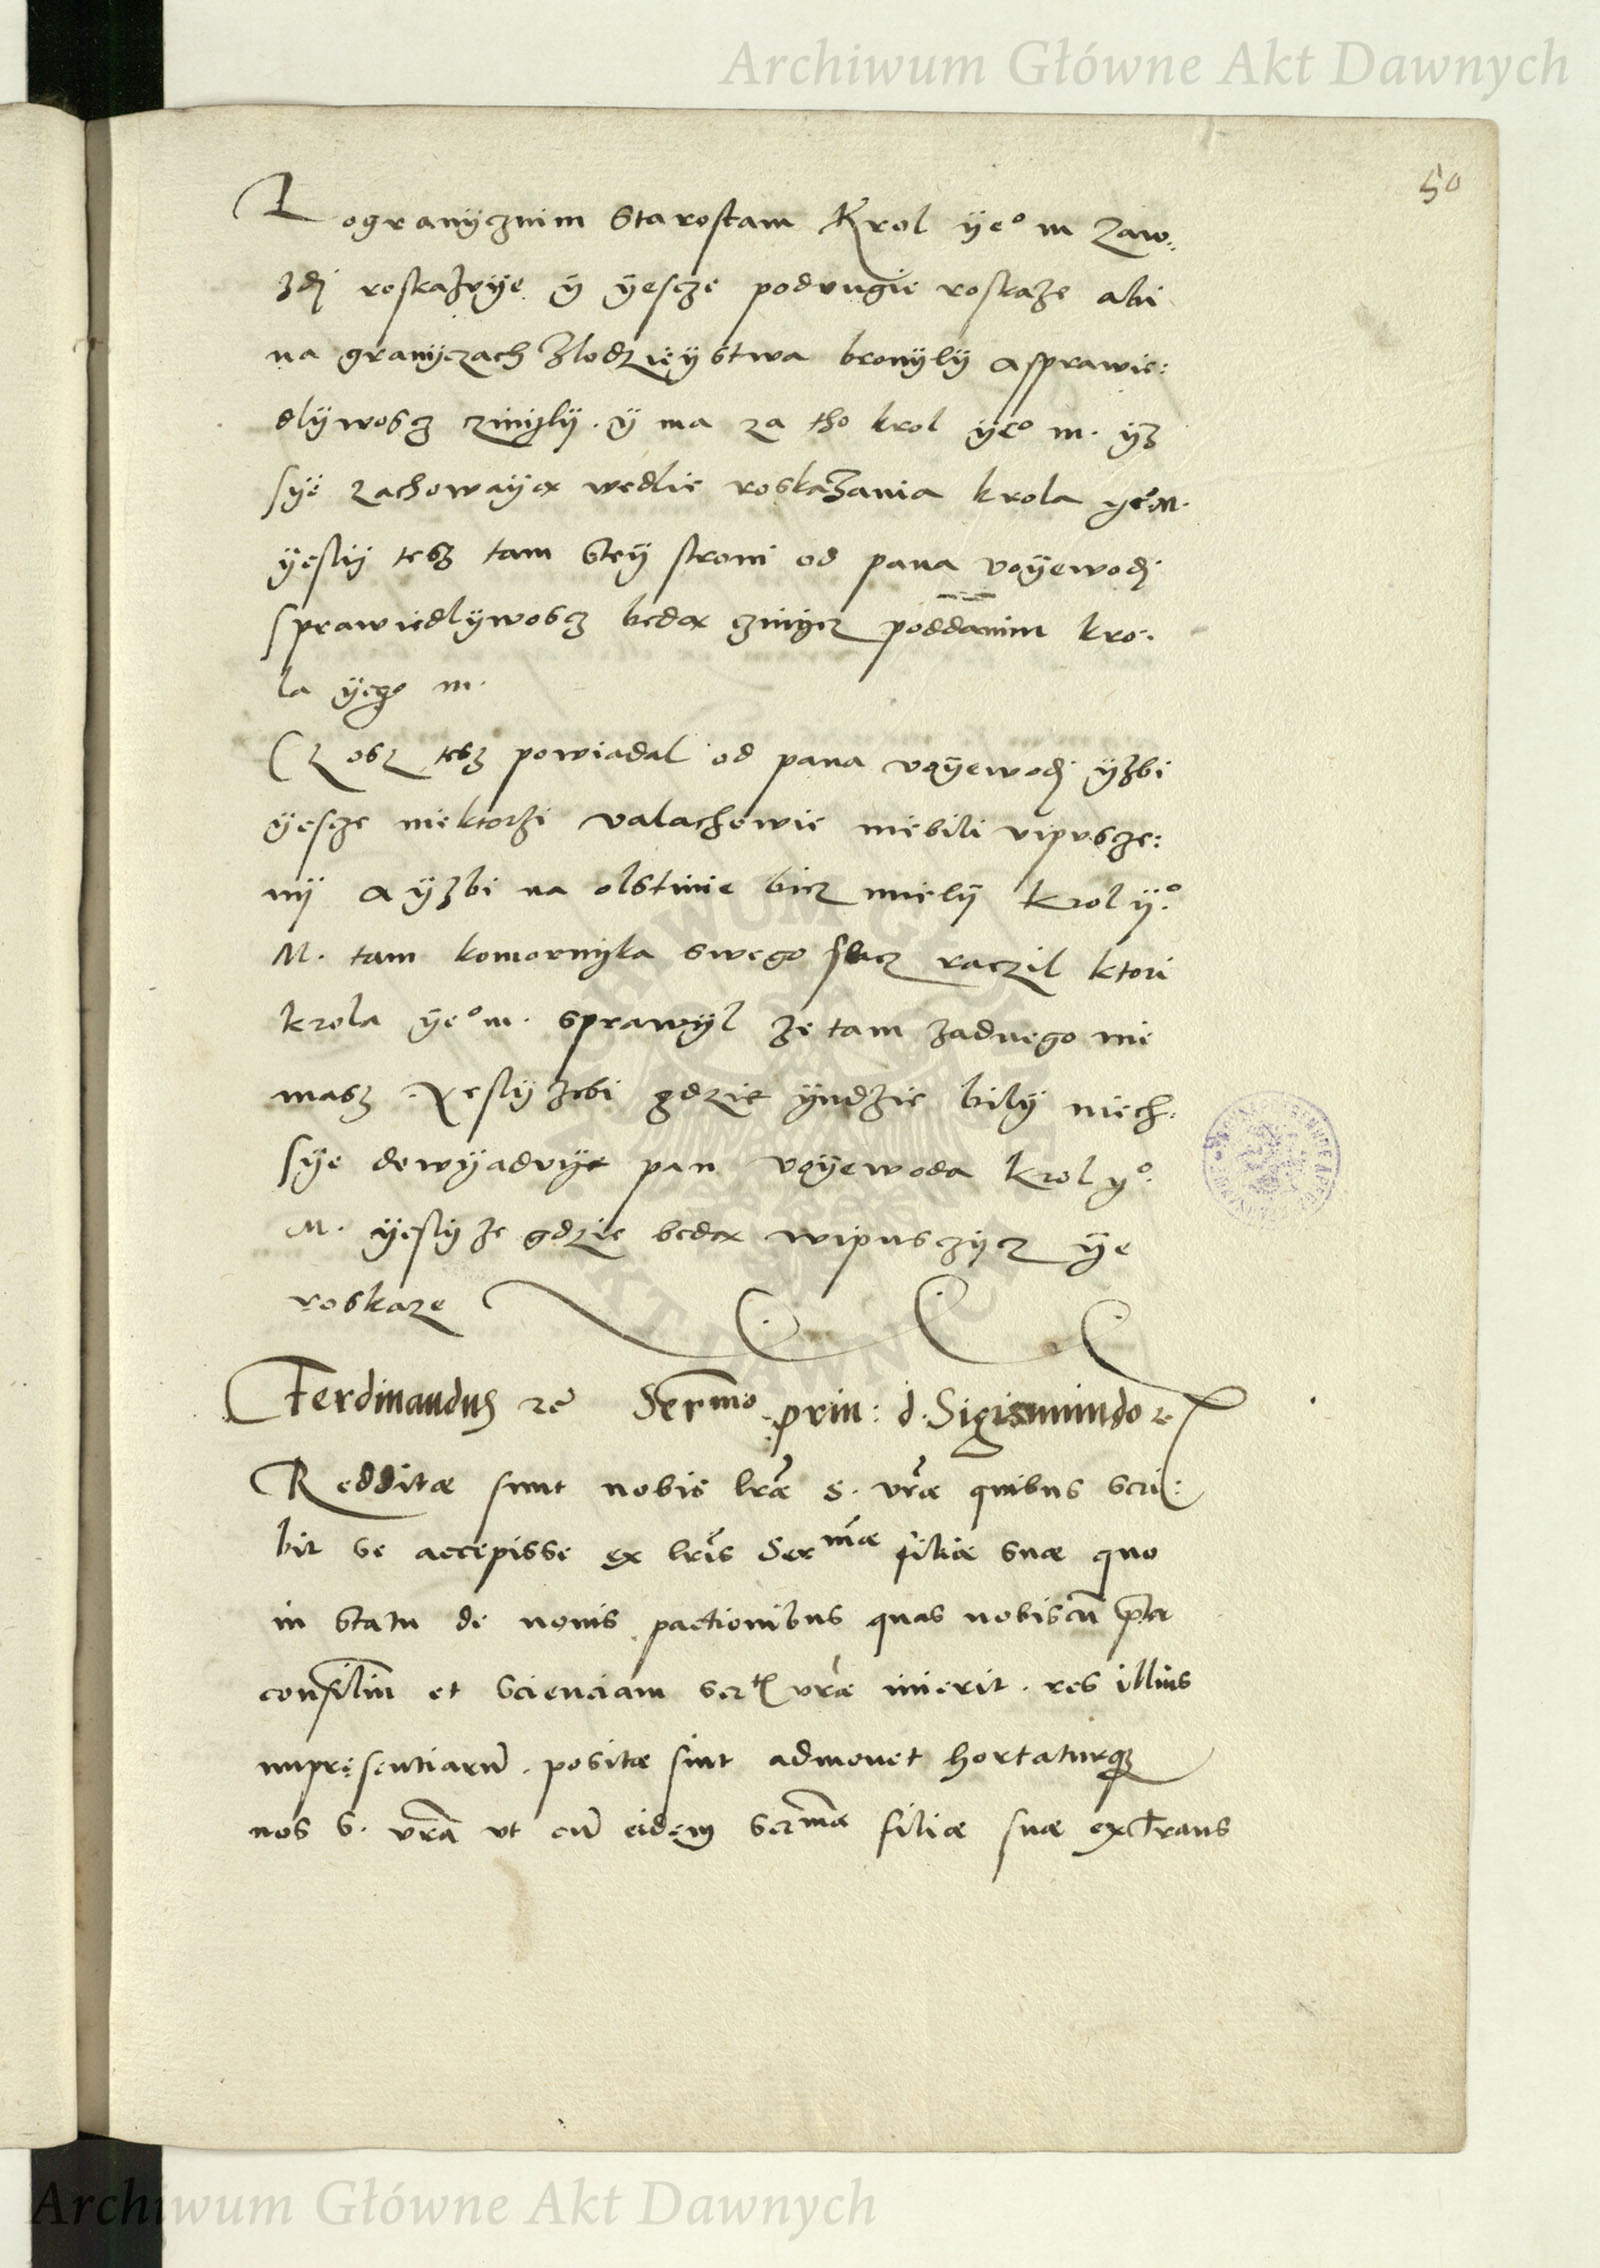 Archiwum Główne Akt Dawnych
50
Pogranÿcznim Starostam Krol ÿe° m zaw„
zdj roskazuÿe ÿ ÿescze podrugie roskaze abi
na granÿczach zlodzieÿstwa bronÿlÿ a sprawie:
dlÿwoscz czinÿlÿ. ÿ ma za tho krol ÿe° m. ÿz
sÿe zachowaÿa wedlie roskazania krola ÿe°m.
ÿeslÿ tesz tam stey stroni od pana voÿewodj
sprawiedlÿwoscz beda czinÿcz poddanim kro:
la ÿego m.
Czosz tesz powiadal od pana voÿewodj ÿzbi
ÿescze niektorzi valachowie niebili vipuscze:
nÿ a ÿzbi na olstinie bicz mielÿ krol ÿ°.
M. tam komornÿka swego slacz raczil ktori
krola ÿe°m. sprawÿl ze tam zadnego nie
masz. Yeslÿ zebi gdzie ÿndzie bilÿ niech.
sÿe dowÿaduÿe pan voÿewoda krol ÿ°.
M. ÿeslÿ ze gdzie beda wipusczÿcz ÿe
roskaze
Ferdinandus rē Serᵐᵒ prin: d. Sigismundo rē
Redditæ sunt nobis lr̃æ S. vr̃æ quibus scri:
bit se accepisse ex lr̃is Serᵐæ filiæ suæ quo
in statu de nouis pactionibus quas nobiscū p̄ter
consiliū et scienciam serᵗⁱˢ vr̃æ inierit. res illius
inpresentiarū. positæ sint admonet hortaturq₃
nos S. vr̃a vt cū eidem serᵐæ filiæ suæ ex Trans
Archiwum Główne Akt Dawnych